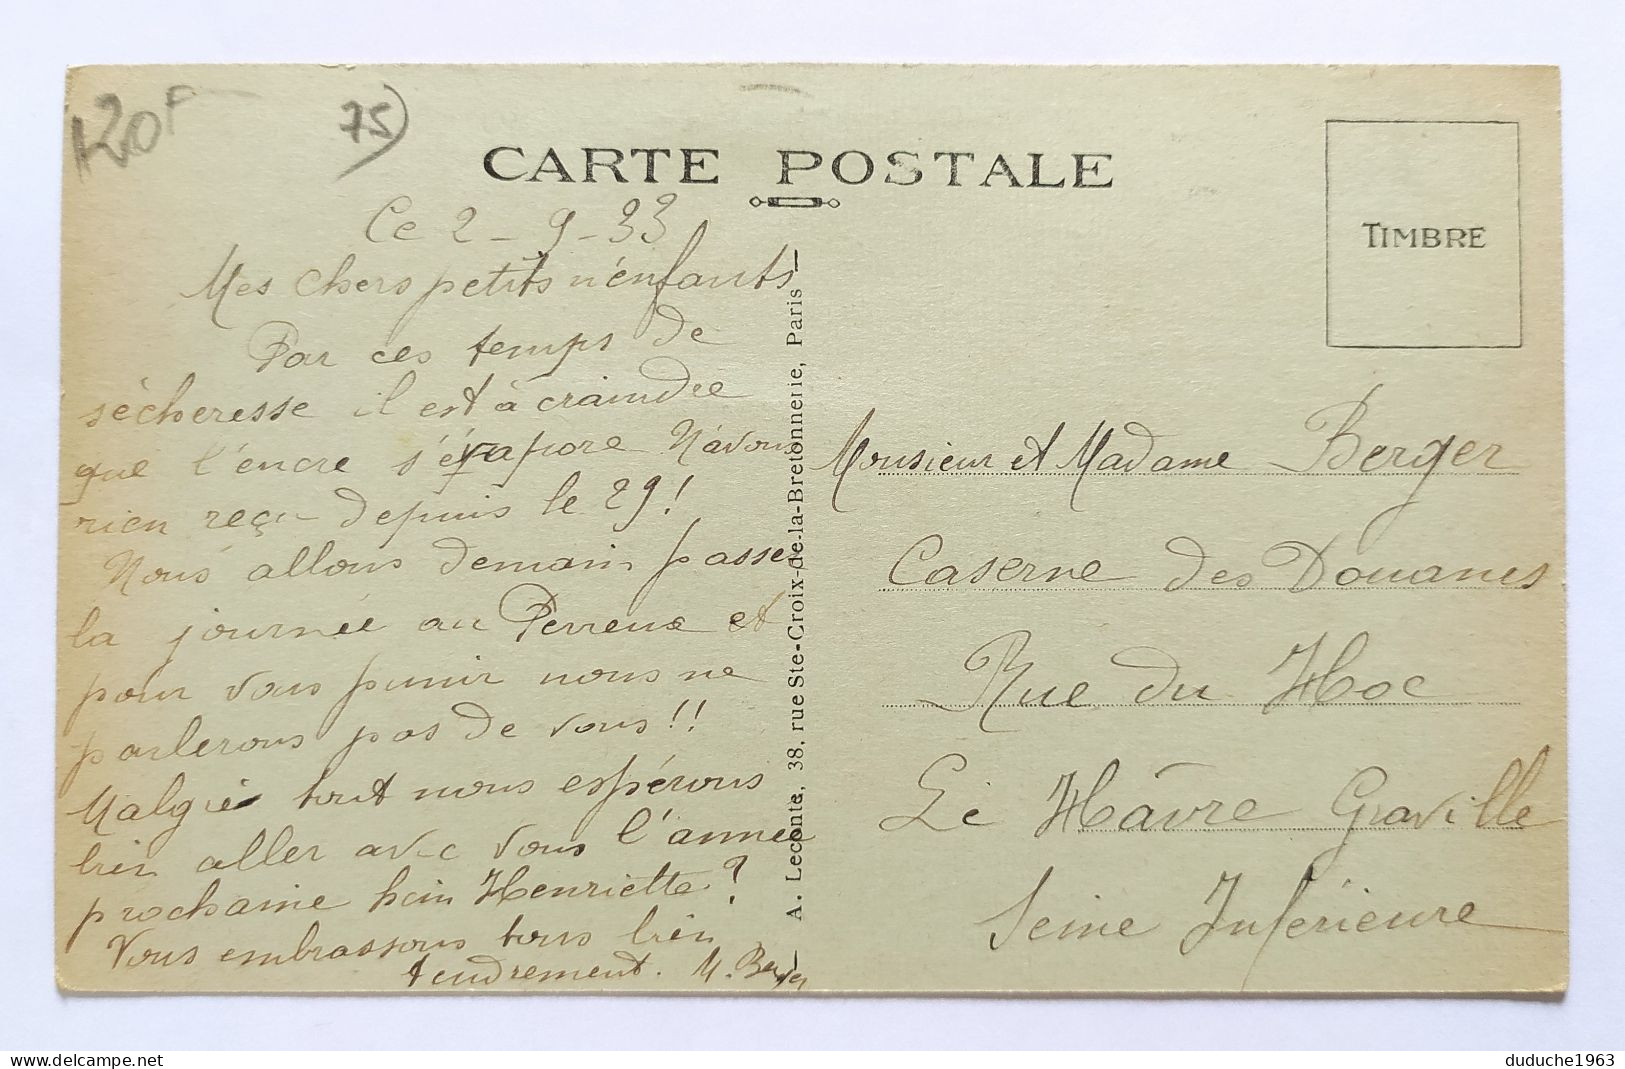 120F
75)
CARTE POSTALE
TIMBRE
Ce 2-9-33
Mes chers petits n'enfants
Par ces temps de
sécheresse il est à craindre
que l'encre s'évapore N'avons
rien reçu depuis le 29!
Nous allons demain passer
la journée au Perreux et
pour vous punir nous ne
parlerons pas de vous!!
Malgré tout nous espérons
bien aller avec vous l'année
prochaine hein Henriette?
Vous embrassons tous bien
tendrement. M. Berger
A. Leconte, 38, rue Ste-Croix-de-la-Bretonnerie, Paris
Monsieur et Madame Berger
Caserne des Douanes
Rue du Hoc
Le Hâvre Graville
Seine Inférieure
delcampe.net
duduche1963